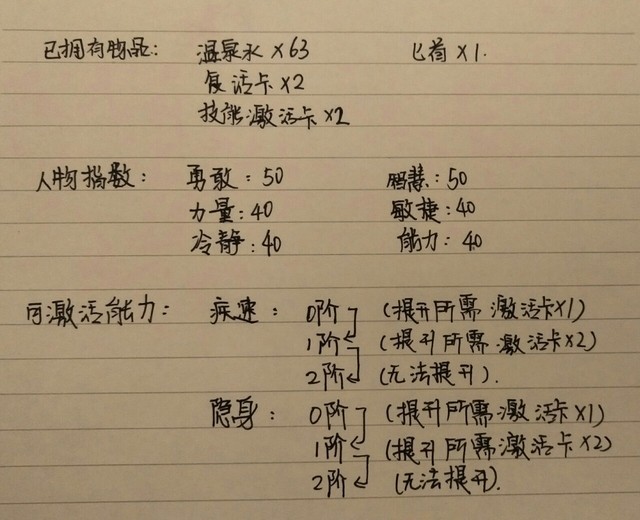 已拥有物品： 温泉水×63 匕首×1.
复活卡×2
技能激活卡×2
人物指数： 勇敢：50 智慧：50
力量：40 敏捷：40
冷静：40 能力：40
可激活能力： 疾速： 0阶 (提升所需激活卡×1)
1阶 (提升所需激活卡×2)
2阶 (无法提升).
隐身： 0阶 (提升所需激活卡×1)
1阶 (提升所需激活卡×2)
2阶 (无法提升).